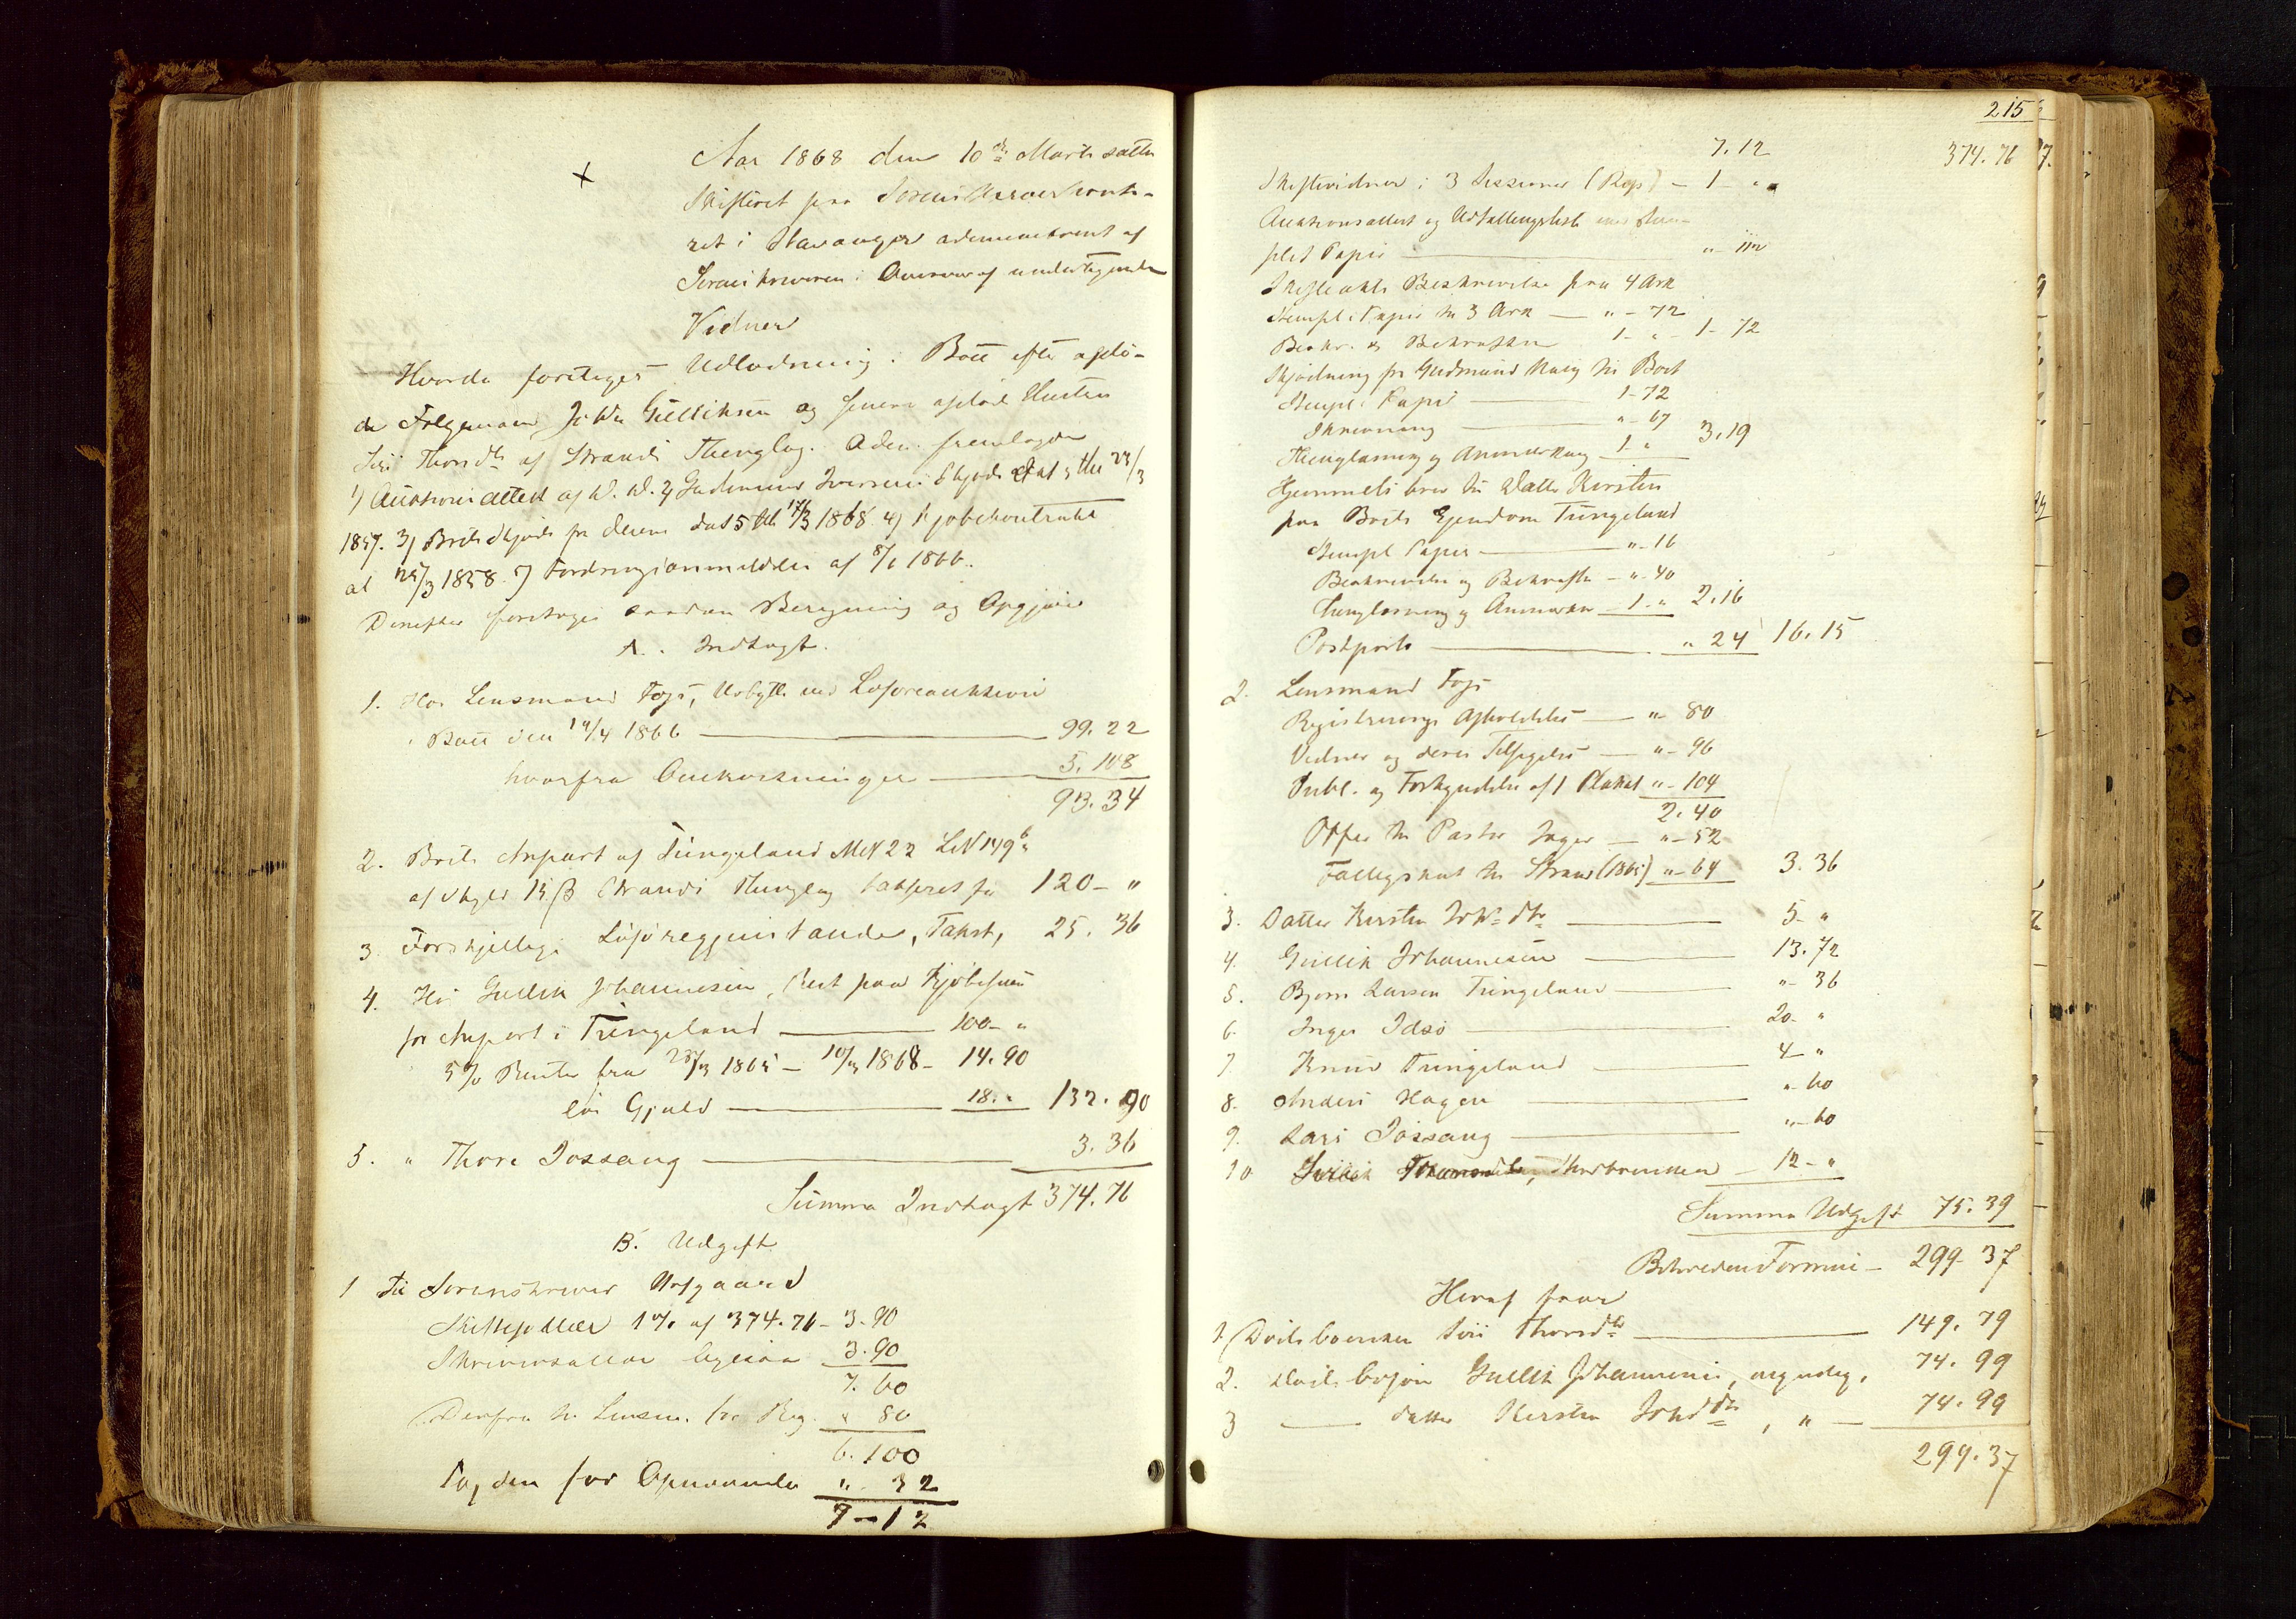 Aar 1868 den 10de Marts sattes
+
Skifteret paa Sorenskriverkonto-
ret i Stavanger administreret af
Sorenskriveren i Overvær af undertegnede
Vidner
Hvorda foretages Udlodning i Boet efter afdø-
de Følgemand Johs Gulliksen og senere afdøde Hustru
Siri Thorsdtr af Strands Thinglag. Adm. fremlagde
1) Auktionsattest af D. D. 2) Gudmund Iversens Skjøde dat. & thl 23/3
1857. 3) Boets Skjøde fra denne dat 5 thl 14/3 1868 4) Kjøbekontrakt
at 25/3 1858. 5) Fordringsanmeldelse af 8/1 1866.
Derefter foretoges saadan Beregning og Opgjør
A. Indtægt.
1. Hos Lensmand Fojs, Udbytte ved Løsøreauktion
i Boet den 14/4 1866 99. 22
hvorfra Omkostninger 5. 108
93. 34
2. Boets Anpart af Tungeland MN 22 LN 149b
af Skyld 15 β Strands Thinglag taxeret for 120 - "
3. Forskjellige Løsøregjenstande, Takst, 25. 36
4. Hos Gullik Johannesen, Rest paa Kjøbesum
for Anpart i Tungeland 100 - "
5 % Renter fra 25/3 1865 - 14/3 1868 - 14. 90
løs Gjæld 18. " 132. 90
5. " Thore Jossang 3. 36
Summa Indtægt 374. 76
B. Udgift
1 Til Sorenskriver Urfgaard
Skiftesallær 1 % af 374. 76 - 3. 90
Skriversallær ligesaa 3. 90
7. 60
Derfra til Lensm. for Reg. " 80
6. 100
Tog den for Opnævnelse " 32
7 - 12
215
7. 12 374. 76
Skiftevidner i 3 Sessioner (Rep) - 1 - "
Auktionsattest og Udfællingsliste med Stem-
plet Papir " - 112
Skifteakts Beskrivelse paa 4 Ark
Stempl. Papir til 3 Ark - " - 72
Beskr. & Bekræftn 1 - " - 1 - 72
Skjødning fra Gudmund Haug til Boet
Stempl. Papir 1 - 72
Skrivning " - 67
Thinglæsning og Anmærkning 1 - " 3. 19
Hjemmels brev til Datter Kirsten
paa Boets Ejendom Tungeland
Stempl. Papir " - 16
Beskrivelse og Bekræftn - " - 40
Thinglæsning og Anmærkn - 1 - " 2. 16
Postporto " 24 16. 15
2. Lensmand Fojs
Registrerings Afholdelse " - 80
Vidner og deres Tilsigelse " - 96
Publ. og Forkyndelse af 1 Plakat " - 104
2. 40
Offer til Pastor Jager " - 52
Fattigskat til Strand (1865) " - 64 3. 36
3. Datter Kirsten Johs dtr 5 - "
4. Gullik Johannesen 13. 72
5. Bjørn Larsen Tungeland " - 36
6. Inger Idsø 20 - "
7. Knud Tungeland 4 - "
8. Anders Hagen " - 60
9. Lars Jøssang " - 60
10 - 12 - "
Summa Udgift 75. 39
Beholden Formue - 299 - 37
Heraf faar
1. Dødsboenken Siri Thorsdtr 149. 79
2. Dødsbosøn Gullik Johannesen, myndig, 74. 99
3 — datter Kirsten Johs dtr, " - 74. 99
299. 37